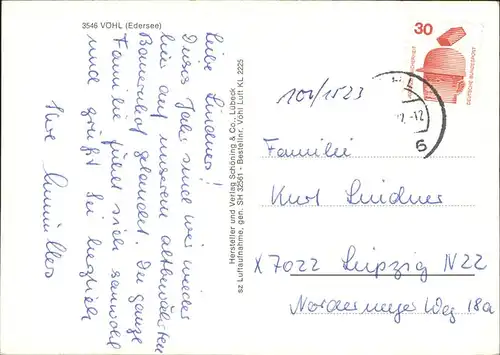 3546 VÖHL (Edersee)
Liebe Lindners!
Dieses Jahr sind wir wieder
hier auf unserem altbewährten
Bauernhof gelandet. Die ganze
Familie fühlt sich sauwohl
und grüßt Sie herzlich
Ihre
Hersteller und Verlag Schöning & Co., Lübeck
sz Luftaufnahme, gen. SH 32561 - Bestellnr. Vöhl Luft KL 2225
30
DEUTSCHE BUNDESPOST
-12
6
101/1523
Familie
Kurt Lindner
X 7022 Leipzig N22
Nordermeyer Weg 18a